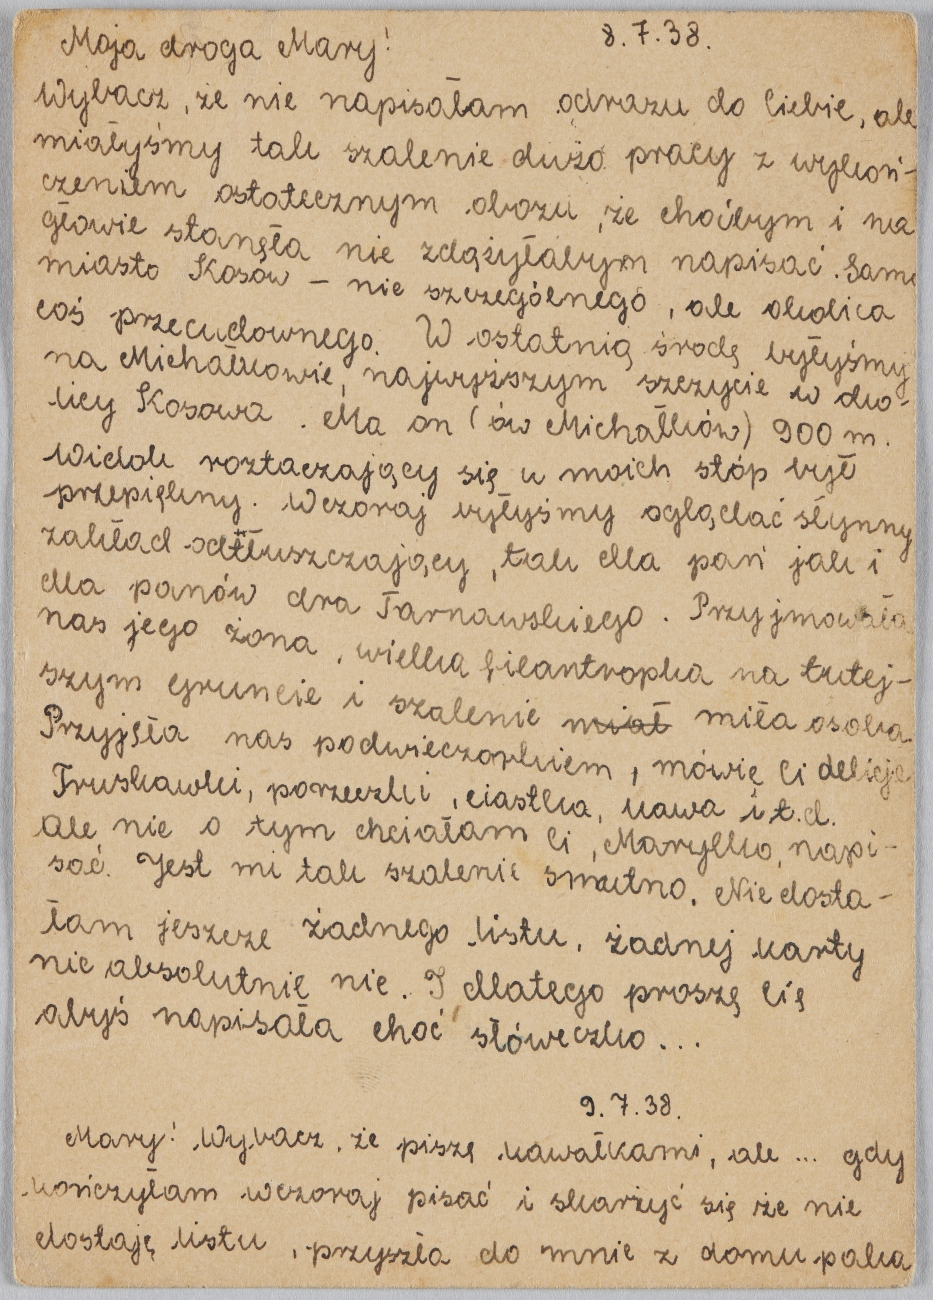 Moja droga Mary! 8.7.38.
Wybacz, że nie napisałam odrazu do Ciebie, ale
miałyśmy tak szalenie dużo pracy z wykoń-
czeniem ostatecznym obozu, że choćbym i na
głowie stanęła nie zdążyłabym napisać. Samo
miasto Kosów – nie szczególnego, ale okolica
coś przecudownego. W ostatnią środę byłyśmy
na Michałkowie, najwyższym szczycie w oko-
licy Kosowa. Ma on (ów Michałków) 900 m.
Widok roztaczający się u moich stóp był
przepiękny. Wczoraj byłyśmy oglądać słynny
zakład odtłuszczający, tak dla pań jak i
dla panów dra Tarnawskiego. Przyjmowała
nas jego żona, wielka filantropka na tutej-
szym gruncie i szalenie miał miła osoba.
Przyjęła nas podwieczorkiem, mówię Ci delicje
Truskawki, porzeczki, ciastka, kawa i t.d.
Ale nie o tym chciałam Ci, Marylko, napi-
sać. Jest mi tak szalenie smutno. Nie dosta-
łam jeszcze żadnego listu, żadnej karty
nic absolutnie nic. I dlatego proszę Cię
abyś napisała choć słóweczko...
9.7.38.
Mary! Wybacz, że piszę kawałkami, ale ... gdy
kończyłam wczoraj pisać i skarżyć się że nie
dostaję listu, przyszła do mnie z domu paka